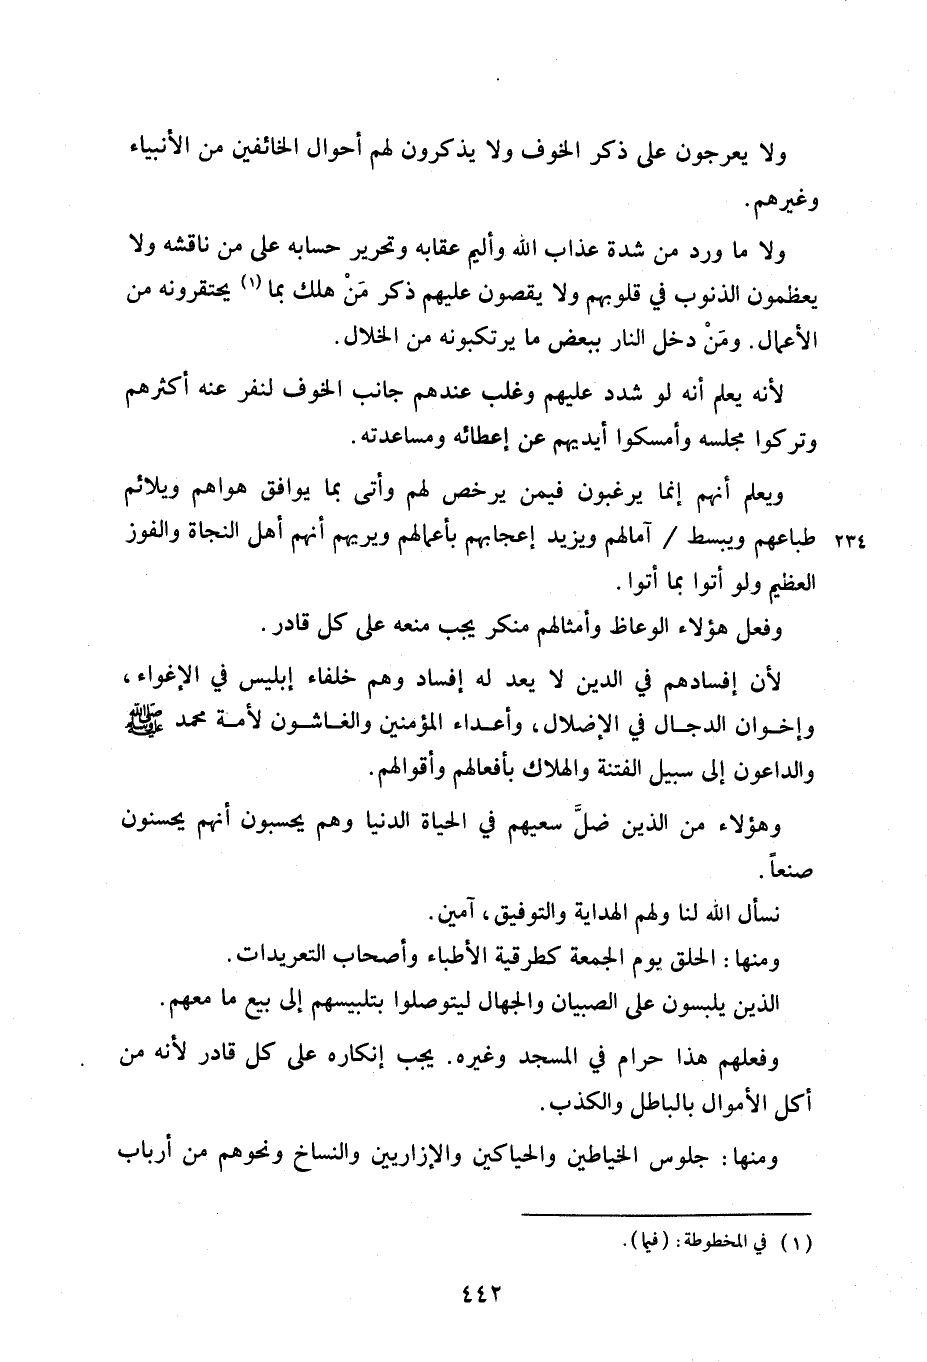 ولا يعرجون على ذكر الخوف ولا يذكرون لهم أحوال الخائفين من الأنبياء
وغيرهم.
ولا ما ورد من شدة عذاب الله وأليم عقابه وتحرير حسابه على من ناقشه ولا
يعظمون الذنوب في قلوبهم ولا يقصون عليهم ذكر مَنْ هلك بما (١) يحتقرونه من
الأعمال. ومَنْ دخل النار ببعض ما يرتكبونه من الخلال.
لأنه يعلم أنه لو شدد عليهم وغلب عندهم جانب الخوف لنفر عنه أكثرهم
وتركوا مجلسه وأمسكوا أيديهم عن إعطائه ومساعدته.
ويعلم أنهم إنما يرغبون فيمن يرخص لهم وأتى بما يوافق هواهم ويلائم
٢٣٤ طباعهم ويبسط / آمالهم ويزيد إعجابهم بأعمالهم ويريهم أنهم أهل النجاة والفوز
العظيم ولو أتوا بما أتوا.
وفعل هؤلاء الوعاظ وأمثالهم منكر يجب منعه على كل قادر.
لأن إفسادهم في الدين لا يعد له إفساد وهم خلفاء إبليس في الإغواء،
وإخوان الدجال في الإضلال، وأعداء المؤمنين والغاشون لأمة محمد ﷺ
والداعون إلى سبيل الفتنة والهلاك بأفعالهم وأقوالهم.
وهؤلاء من الذين ضلَّ سعيهم في الحياة الدنيا وهم يحسبون أنهم يحسنون
صنعاً.
نسأل الله لنا ولهم الهداية والتوفيق، آمين.
ومنها: الحلق يوم الجمعة كطرقية الأطباء وأصحاب التعريدات.
الذين يلبسون على الصبيان والجهال ليتوصلوا بتلبيسهم إلى بيع ما معهم.
وفعلهم هذا حرام في المسجد وغيره. يجب إنكاره على كل قادر لأنه من
أكل الأموال بالباطل والكذب.
ومنها: جلوس الخياطين والحياكين والإزاريين والنساخ ونحوهم من أرباب
(١) في المخطوطة: (فيما).
٤٤٢